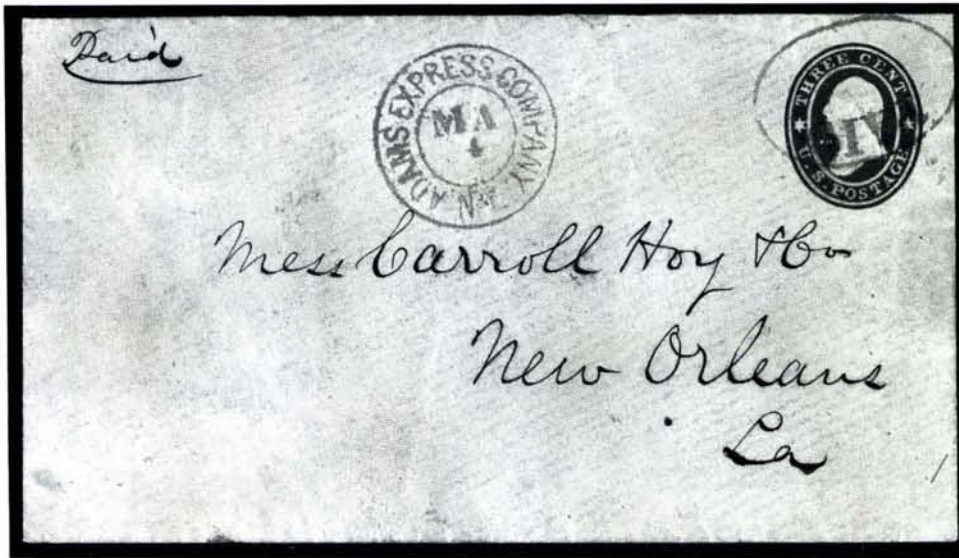 Paid
ADAMS EXPRESS COMPANY. N.Y.
MA
4
THREE CENTS
U.S. POSTAGE
Mess Carroll Hoy & Co
New Orleans
La